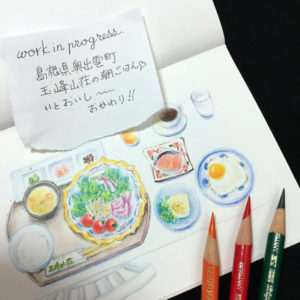 work in progress.
島根県奥出雲町
玉峰山荘の朝ごはん♪
いとおいし〜〜
おかわり!!
玉峰山荘